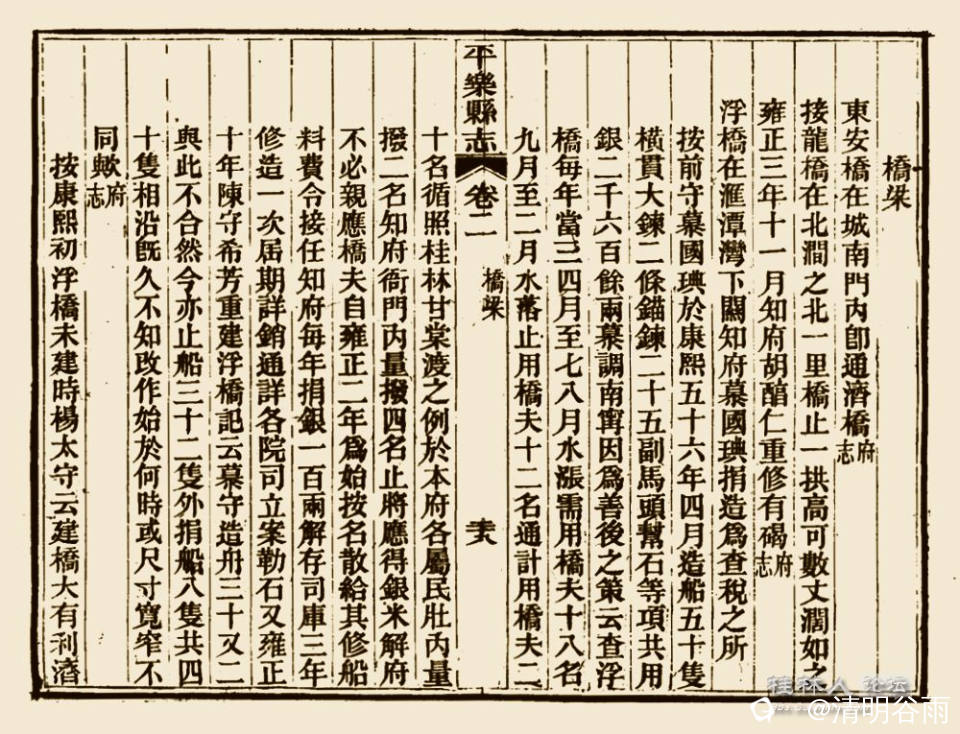 橋梁
東安橋在城南門內卽通濟橋府志
接龍橋在北澗之北一里橋止一拱高可數丈濶如之
雍正三年十一月知府胡醇仁重修有碣府志
浮橋在滙潭灣下關知府慕國琠捐造爲查稅之所
按前守慕國琠於康熙五十六年四月造船五十隻
橫貫大鍊二條錨鍊二十五副馬頭幫石等項共用
銀二千六百餘兩慕調南寧因爲善後之策云查浮
橋每年當三四月至七八月水漲需用橋夫十八名
九月至二月水落止用橋夫十二名通計用橋夫二
平樂縣志
卷二
橋梁
十名循照桂林甘棠渡之例於本府各屬民壯內量
撥二名知府衙門內量撥四名止將應得銀米解府
不必親應橋夫自雍正二年爲始按名散給其修船
料費令接任知府每年捐銀一百兩解存司庫三年
修造一次屆期詳銷通詳各院司立案勒石又雍正
十年陳守希芳重建浮橋記云慕守造舟三十又二
與此不合然今亦止船三十二隻外捐船八隻共四
十隻相沿旣久不知改作始於何時或尺寸寬窄不
同歟府志
按康熙初浮橋未建時楊太守云建橋大有利濟
桂林人 论坛
@清明谷雨